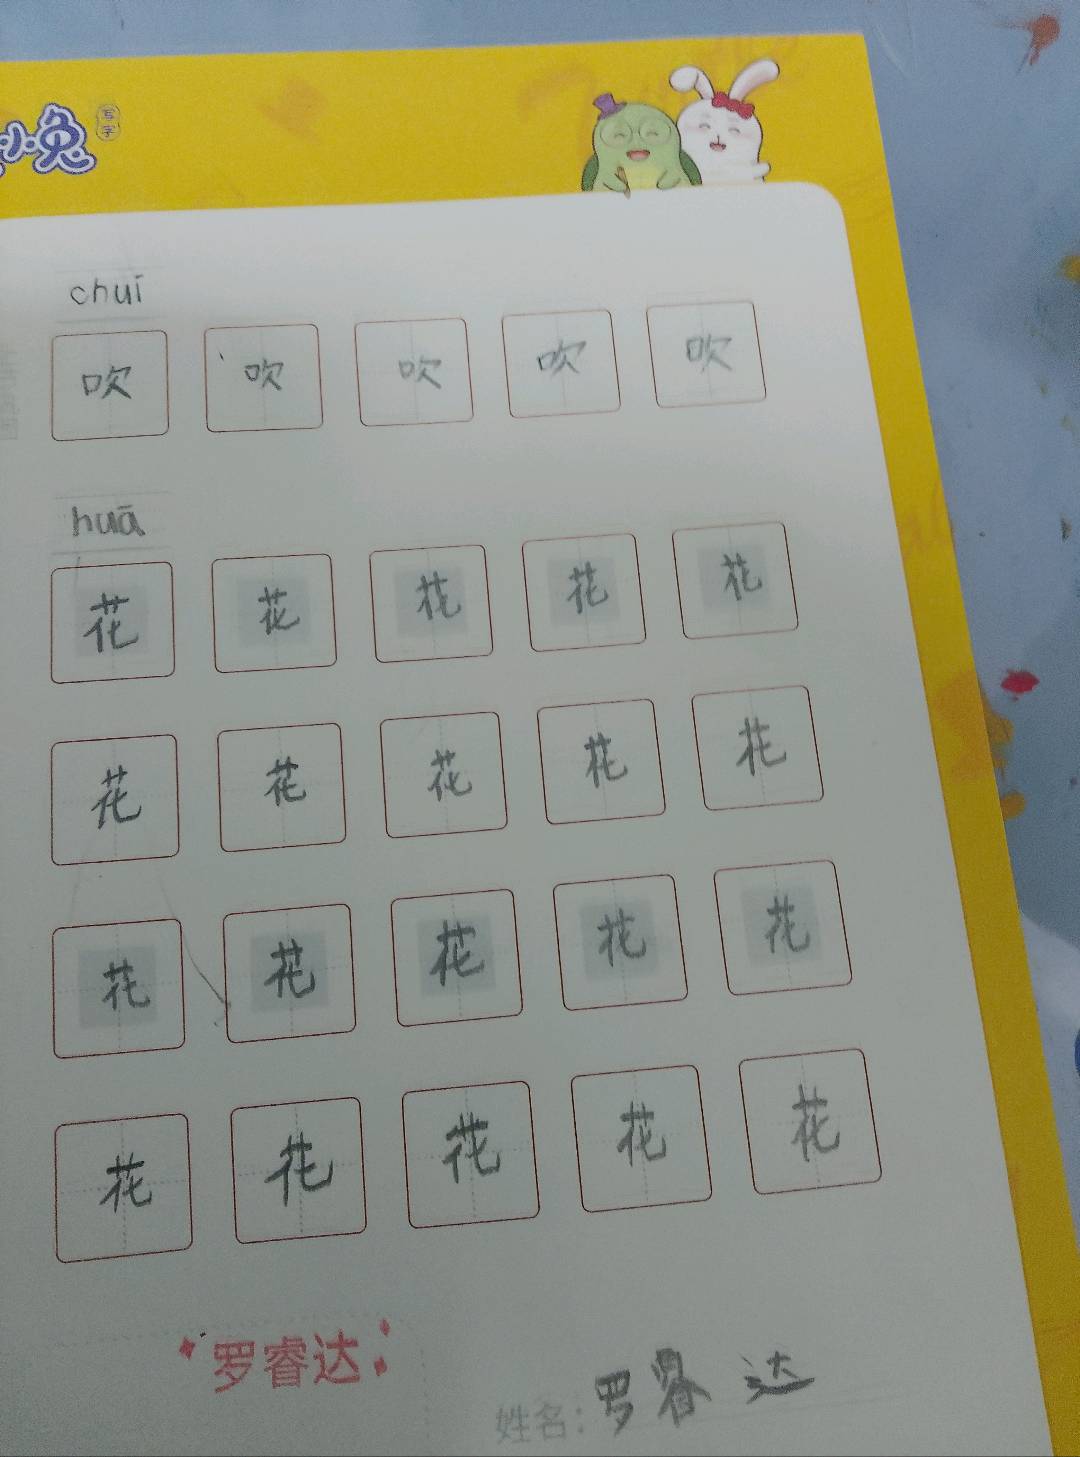 小兔 写字
chuī
吹 吹 吹 吹 吹
huā
花 花 花 花 花
花 花 花 花 花
花 花 花 花 花
花 花 花 花 花
罗睿达
姓名：罗睿达